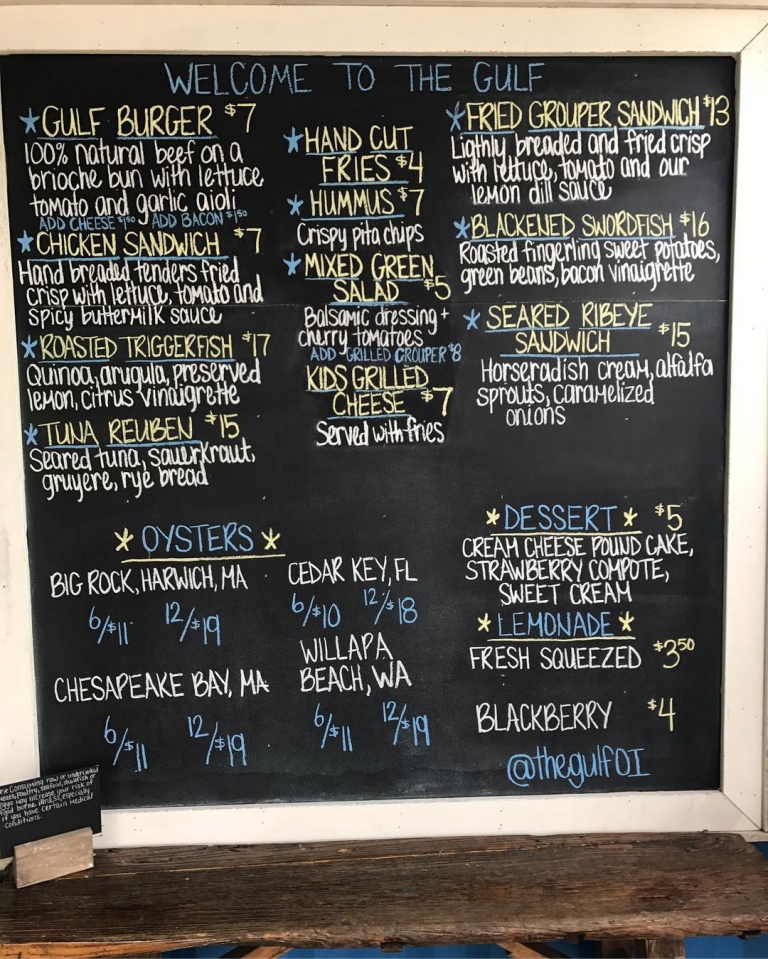 WELCOME TO THE GULF
GULF BURGER $7
100% natural beef on a
brioche bun with lettuce
tomato and garlic aioli
ADD CHEESE $1.50 ADD BACON $1.50
CHICKEN SANDWICH $7
Hand breaded tenders fried
crisp with lettuce, tomato and
spicy buttermilk sauce
ROASTED TRIGGERFISH $17
Quinoa, arugula, preserved
lemon, citrus vinaigrette
TUNA REUBEN $15
Seared tuna, sauerkraut,
gruyere, rye bread
HAND CUT
FRIES $4
HUMMUS $7
Crispy pita chips
MIXED GREEN
SALAD $5
Balsamic dressing +
cherry tomatoes
ADD GRILLED GROUPER $8
KIDS GRILLED
CHEESE $7
Served with fries
FRIED GROUPER SANDWICH $13
Ligthly breaded and fried crisp
with lettuce, tomato and our
lemon dill sauce
BLACKENED SWORDFISH $16
Roasted fingerling sweet potatoes,
green beans, bacon vinaigrette
SEARED RIBEYE
SANDWICH $15
Horseradish cream, alfalfa
sprouts, caramelized
onions
* OYSTERS *
BIG ROCK, HARWICH, MA
6/$11 12/$19
CHESAPEAKE BAY, MA
6/$11 12/$19
CEDAR KEY, FL
6/$10 12/$18
WILLAPA
BEACH, WA
6/$11 12/$19
* DESSERT * $5
CREAM CHEESE POUND CAKE,
STRAWBERRY COMPOTE,
SWEET CREAM
* LEMONADE *
FRESH SQUEEZED $3.50
BLACKBERRY $4
@thegulfOI
Consuming raw or undercooked
meats, poultry, seafood, shellfish or
eggs may increase your risk of
food borne illness, especially
if you have certain medical
conditions.